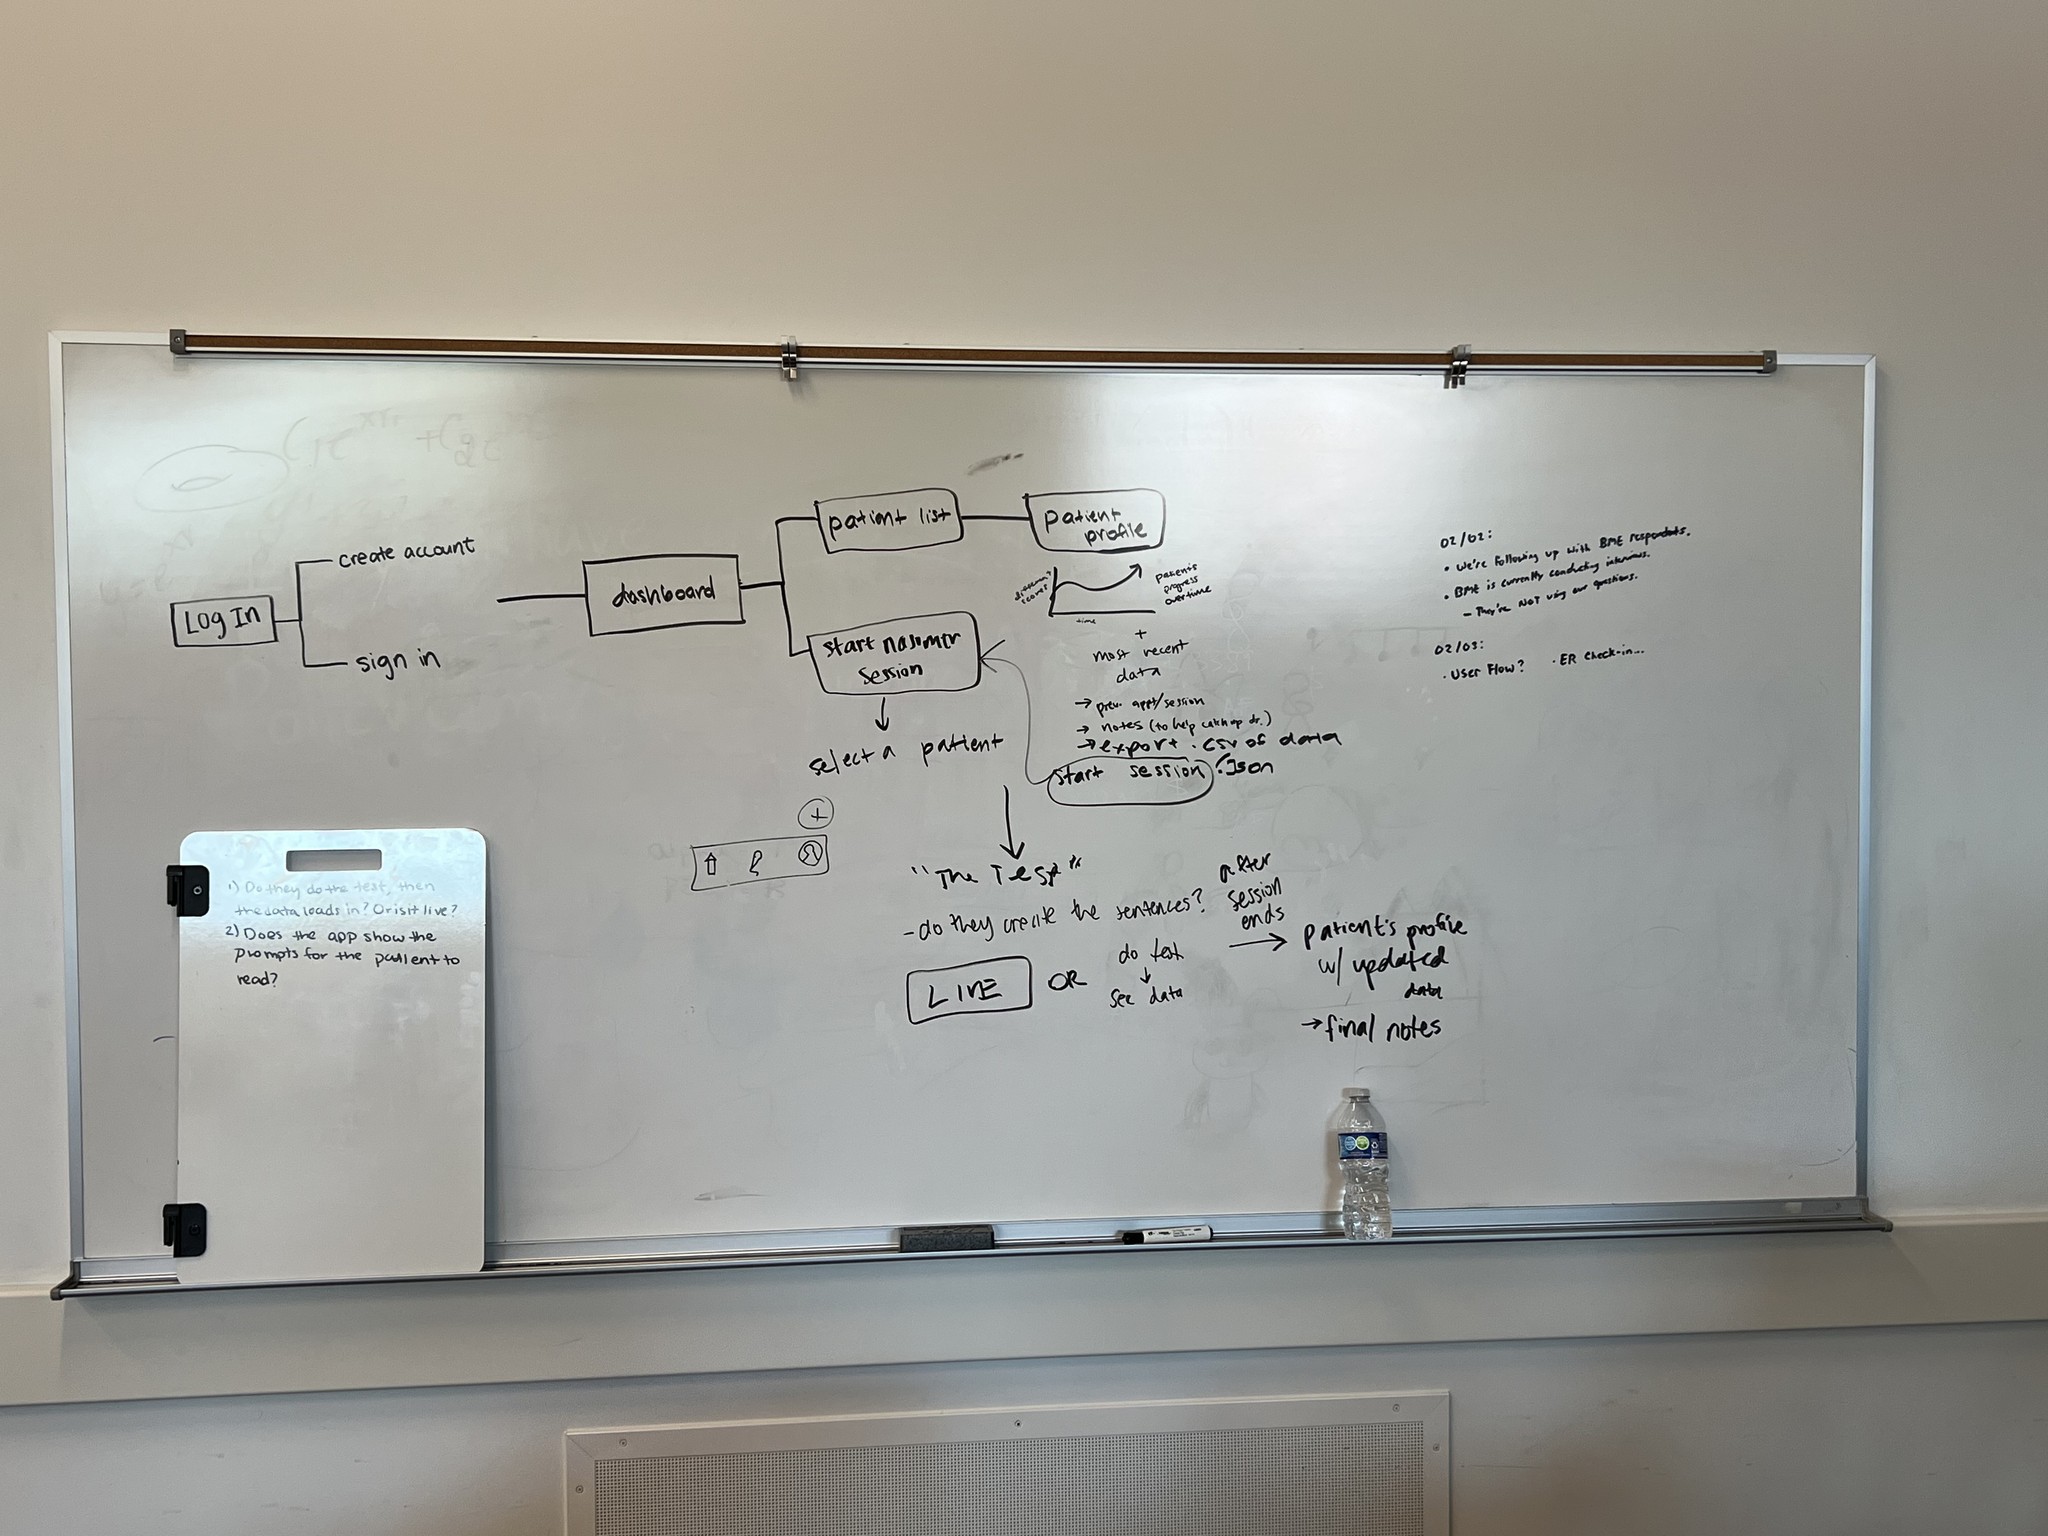 Log In
create account
sign in
dashboard
patient list
patient
profile
start
session
select a patient
scores
time
patient's
progress
overtime
+
most recent
data
→ prev. appt/session
→ notes (to help catch up dr.)
→ export .csv of data
.Json
start session
+
"The Test"
- do they create the sentences?
LIVE
OR
do test
↓
see data
after
session
ends
→
patient's profile
w/ updated
data
→ final notes
02/02:
• We're following up with BME respondents.
• BME is currently conducting interviews.
- They're NOT using our questions.
02/03:
• User Flow?
• ER Check-in...
1) Do they do the test, then
the data loads in? Or is it live?
2) Does the app show the
prompts for the patient to
read?